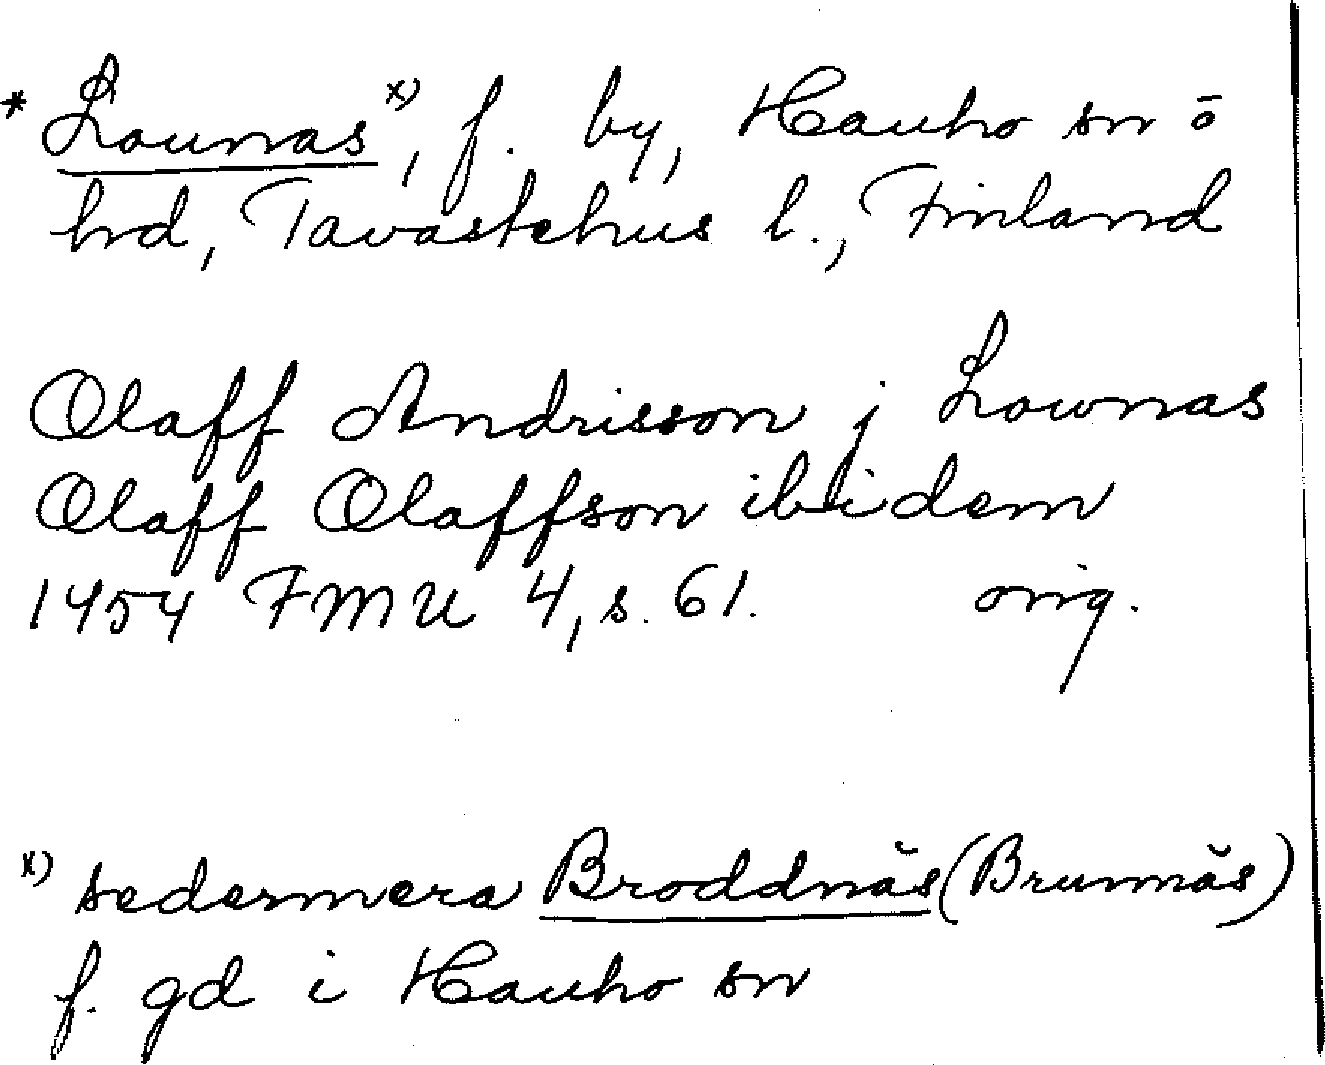 * Lounas x), f. by, Hauho sn ō
hrd, Tavastehus l., Finland
Olaff Andrisson j Lownas
Olaff Olaffson ibidem
1454 FMU 4, s. 61. orig.
x) sedermera Broddnäs (Brunnäs)
f. gd i Hauho sn